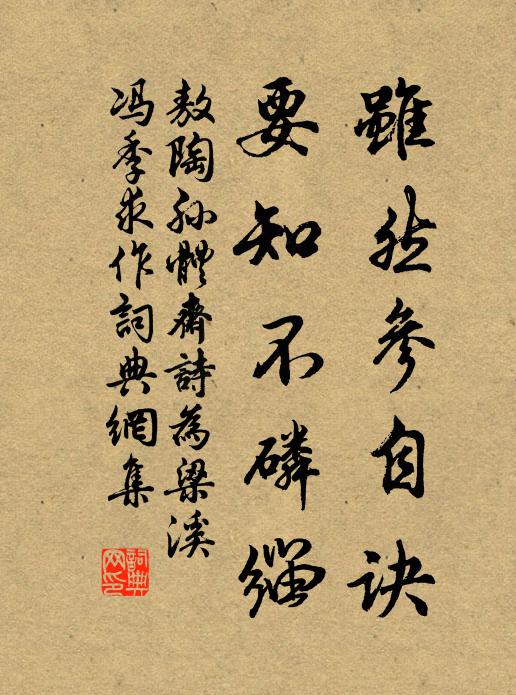 雖然參自訣
要知不磷緇
敖陶孫體齋詩為梁溪
馮季求作詞典網集
詞典網印